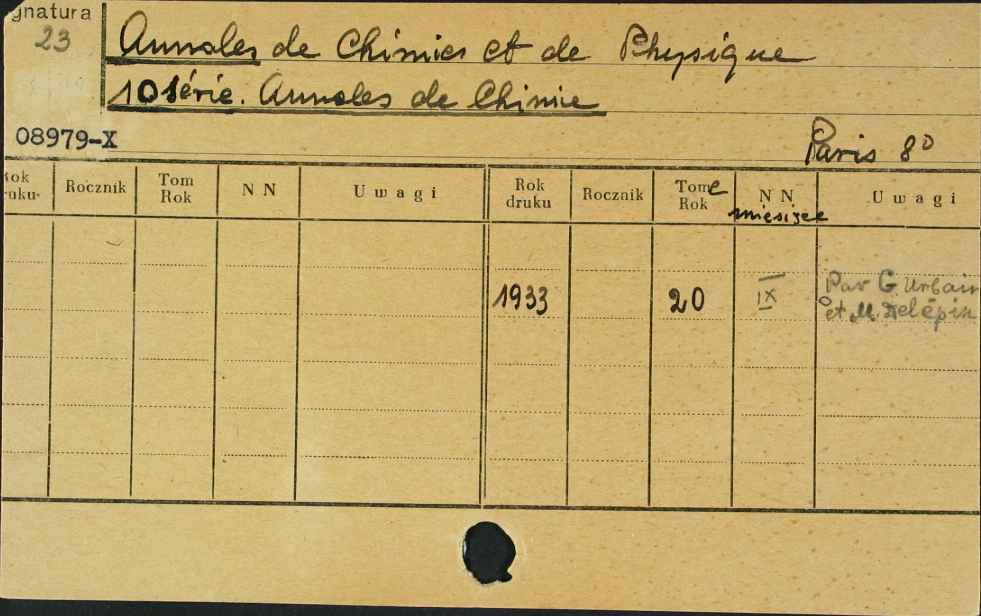 gnatura
23
Annales de Chimie et de Physique
10 série. Annales de Chimie
08979-X
Paris 8º
Rok druku Rocznik Tom Rok N N Uwagi Rok druku Rocznik Tome Rok N N miesiące Uwagi
1933 20 IX Par G Urbain
et M. Delépin